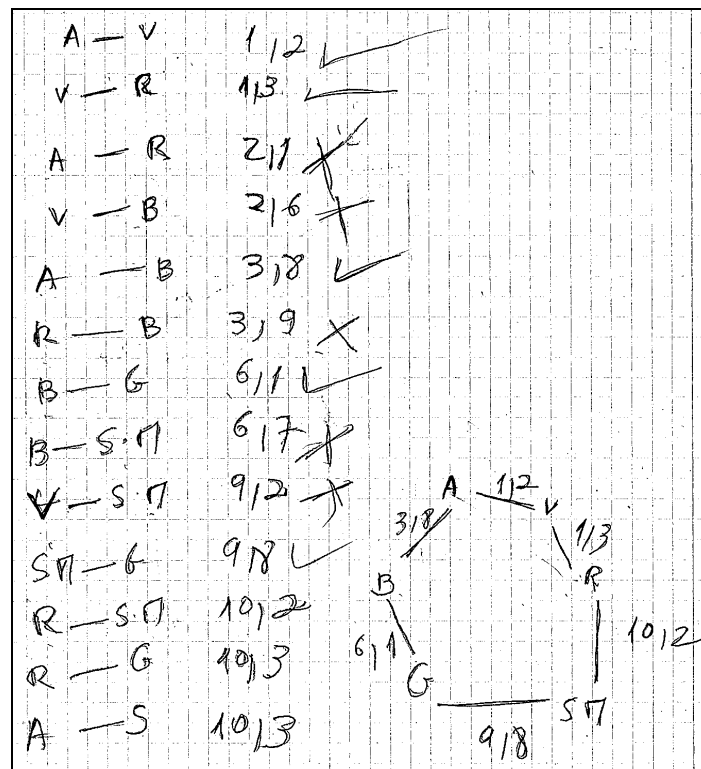 A — V 1,2 ✓
V — R 1,3 ✓
A — R 2,1 ✗
V — B 2,6 ✗
A — B 3,8 ✓
R — B 3,9 ✗
B — G 6,1 ✓
B — S.M 6,7 ✗
V — S M 9,2 ✗
SM — G 9,8 ✓
R — S.M 10,2
R — G 10,3
A — S 10,3
A 1,2 V
3,8 1,3
B R
6,1 10,2
G S M
9,8